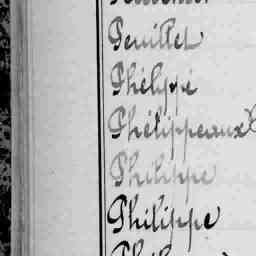 Peuillet
Phélyppé
Phélippeaux
Philippe
Philippe